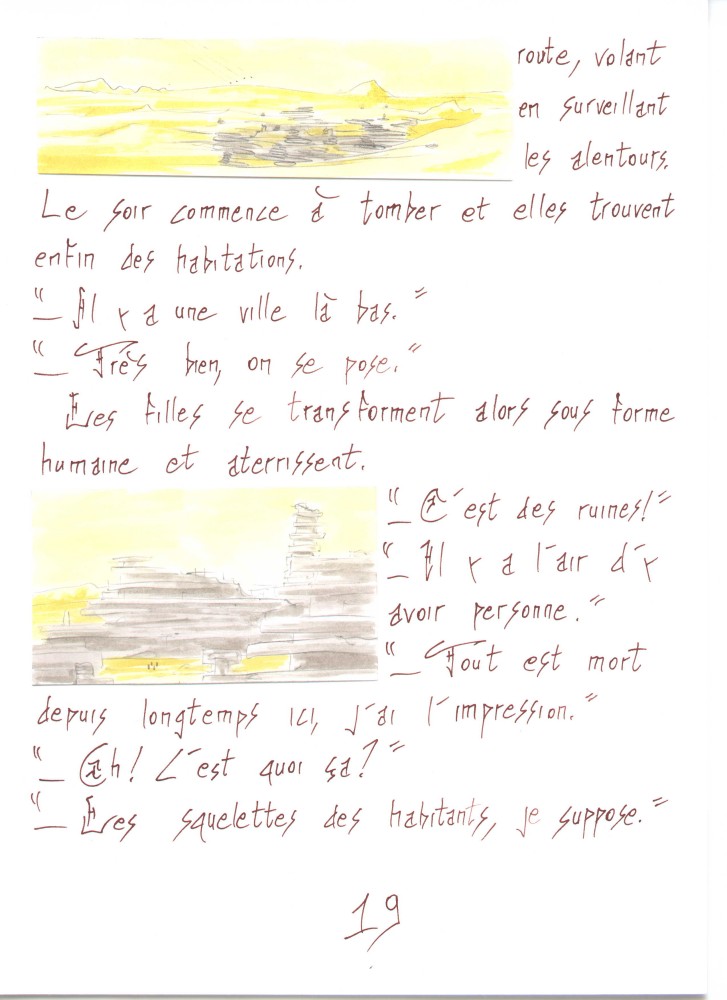 route, volant
en surveillant
les alentours.
Le soir commence à tomber et elles trouvent
enfin des habitations.
"_ Il y a une ville là bas."
"_ Très bien, on se pose."
Les filles se transforment alors sous forme
humaine et aterrissent.
"_ C'est des ruines!"
"_ Il y a l'air d'y
avoir personne."
"_ Tout est mort
depuis longtemps ici, j'ai l'impression."
"_ Ah! C'est quoi ça?"
"_ Les squelettes des habitants, je suppose."
19